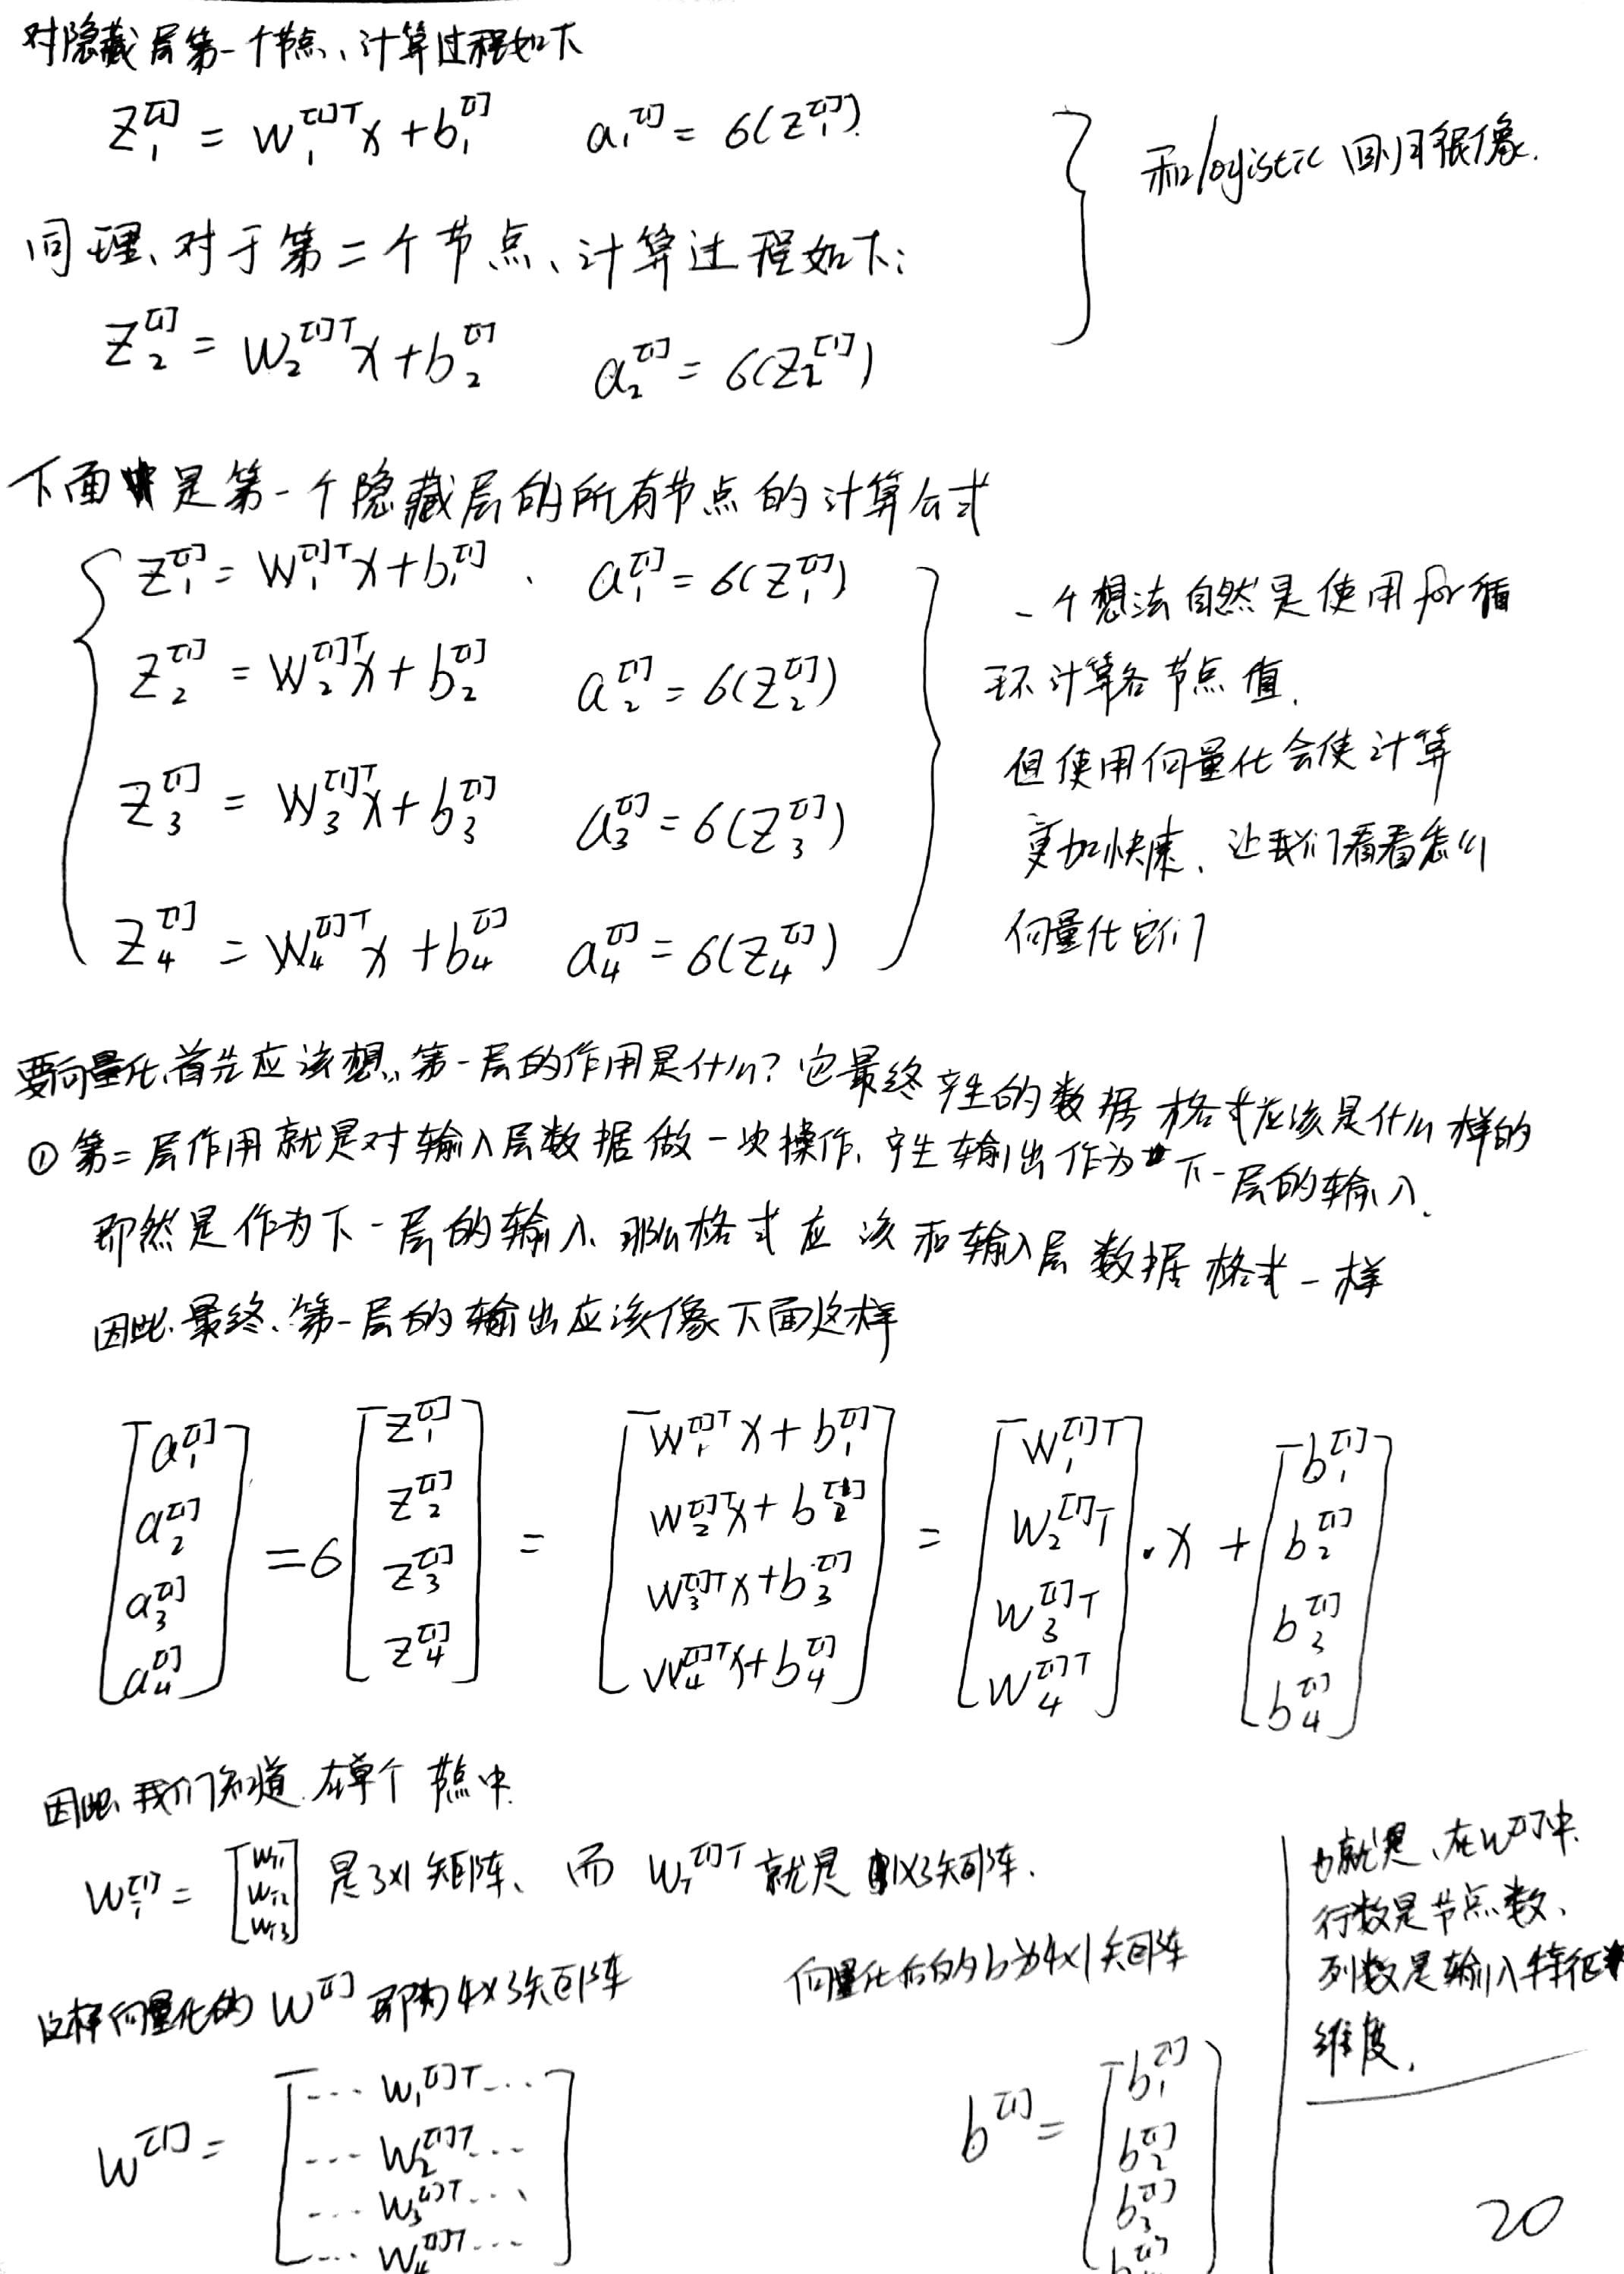 对隐藏层第一个节点、计算过程如下
z₁^[1] = w₁^[1]T x + b₁^[1]   a₁^[1] = 6(z₁^[1])
和logistic 回归很像.
同理、对于第二个节点、计算过程如下:
z₂^[1] = w₂^[1]T x + b₂^[1]   a₂^[1] = 6(z₂^[1])
下面是第一个隐藏层的所有节点的计算公式
z₁^[1] = w₁^[1]T x + b₁^[1]、 a₁^[1] = 6(z₁^[1])
z₂^[1] = w₂^[1]T x + b₂^[1]   a₂^[1] = 6(z₂^[1])
z₃^[1] = w₃^[1]T x + b₃^[1]   a₃^[1] = 6(z₃^[1])
z₄^[1] = w₄^[1]T x + b₄^[1]   a₄^[1] = 6(z₄^[1])
一个想法自然是使用for循
环计算各节点值.
但使用向量化会使计算
更加快速、让我们看看怎么
向量化它们
要向量化、首先应该想、第一层的作用是什么? 它最终产生的数据格式应该是什么样的
① 第二层作用就是对输入层数据做一次操作、产生输出作为下一层的输入.
即然是作为下一层的输入、那么格式应该和输入层数据格式一样
因此、最终、第一层的输出应该像下面这样
[a₁^[1]; a₂^[1]; a₃^[1]; a₄^[1]] = 6[z₁^[1]; z₂^[1]; z₃^[1]; z₄^[1]] = [w₁^[1]T x + b₁^[1]; w₂^[1]T x + b₂^[1]; w₃^[1]T x + b₃^[1]; w₄^[1]T x + b₄^[1]] = [w₁^[1]T; w₂^[1]T; w₃^[1]T; w₄^[1]T] · x + [b₁^[1]; b₂^[1]; b₃^[1]; b₄^[1]]
因此、我们知道、在单个节点中.
wᵢ^[1] = [wᵢ₁; wᵢ₂; wᵢ₃] 是3×1矩阵、而 wᵢ^[1]T 就是1×3矩阵.
这样向量化的 W^[1] 即为4×3矩阵   向量化后的b为4×1矩阵
W^[1] = [--- w₁^[1]T ---; --- w₂^[1]T ---; --- w₃^[1]T ---; --- w₄^[1]T ---]   b^[1] = [b₁^[1]; b₂^[1]; b₃^[1]; b₄^[1]]
也就是、在W^[1]中.
行数是节点数、
列数是输入特征
维度.
20